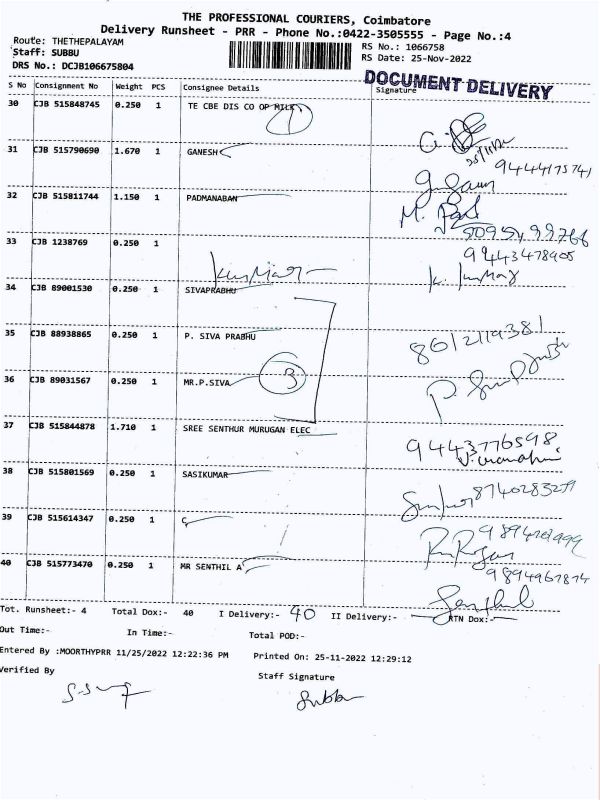 THE PROFESSIONAL COURIERS, Coimbatore
Delivery Runsheet - PRR - Phone No.:0422-3505555 - Page No.:4
Route: THETHEPALAYAM
RS No.: 1066758
Staff: SUBBU
RS Date: 25-Nov-2022
DRS No.: DCJB106675804
DOCUMENT DELIVERY
S No Consignment No Weight PCS Consignee Details Signature
30 CJB 515848745 0.250 1 TE CBE DIS CO OP MILK
1
31 CJB 515790690 1.670 1 GANESH
9444175741
32 CJB 515811744 1.150 1 PADMANABAN
33 CJB 1238769 0.250 1
9443478905
34 CJB 89001530 0.250 1 SIVAPRABHU
35 CJB 88938865 0.250 1 P. SIVA PRABHU
8612119381
36 CJB 89031567 0.250 1 MR.P.SIVA
3
37 CJB 515844878 1.710 1 SREE SENTHUR MURUGAN ELEC
9443776598
38 CJB 515801569 0.250 1 SASIKUMAR
39 CJB 515614347 0.250 1 C
40 CJB 515773470 0.250 1 MR SENTHIL A
9894967874
Tot. Runsheet:- 4 Total Dox:- 40 I Delivery:- 40 II Delivery:- RTN Dox:-
Out Time:- In Time:- Total POD:-
Entered By :MOORTHYPRR 11/25/2022 12:22:36 PM Printed On: 25-11-2022 12:29:12
Verified By Staff Signature
Subbu